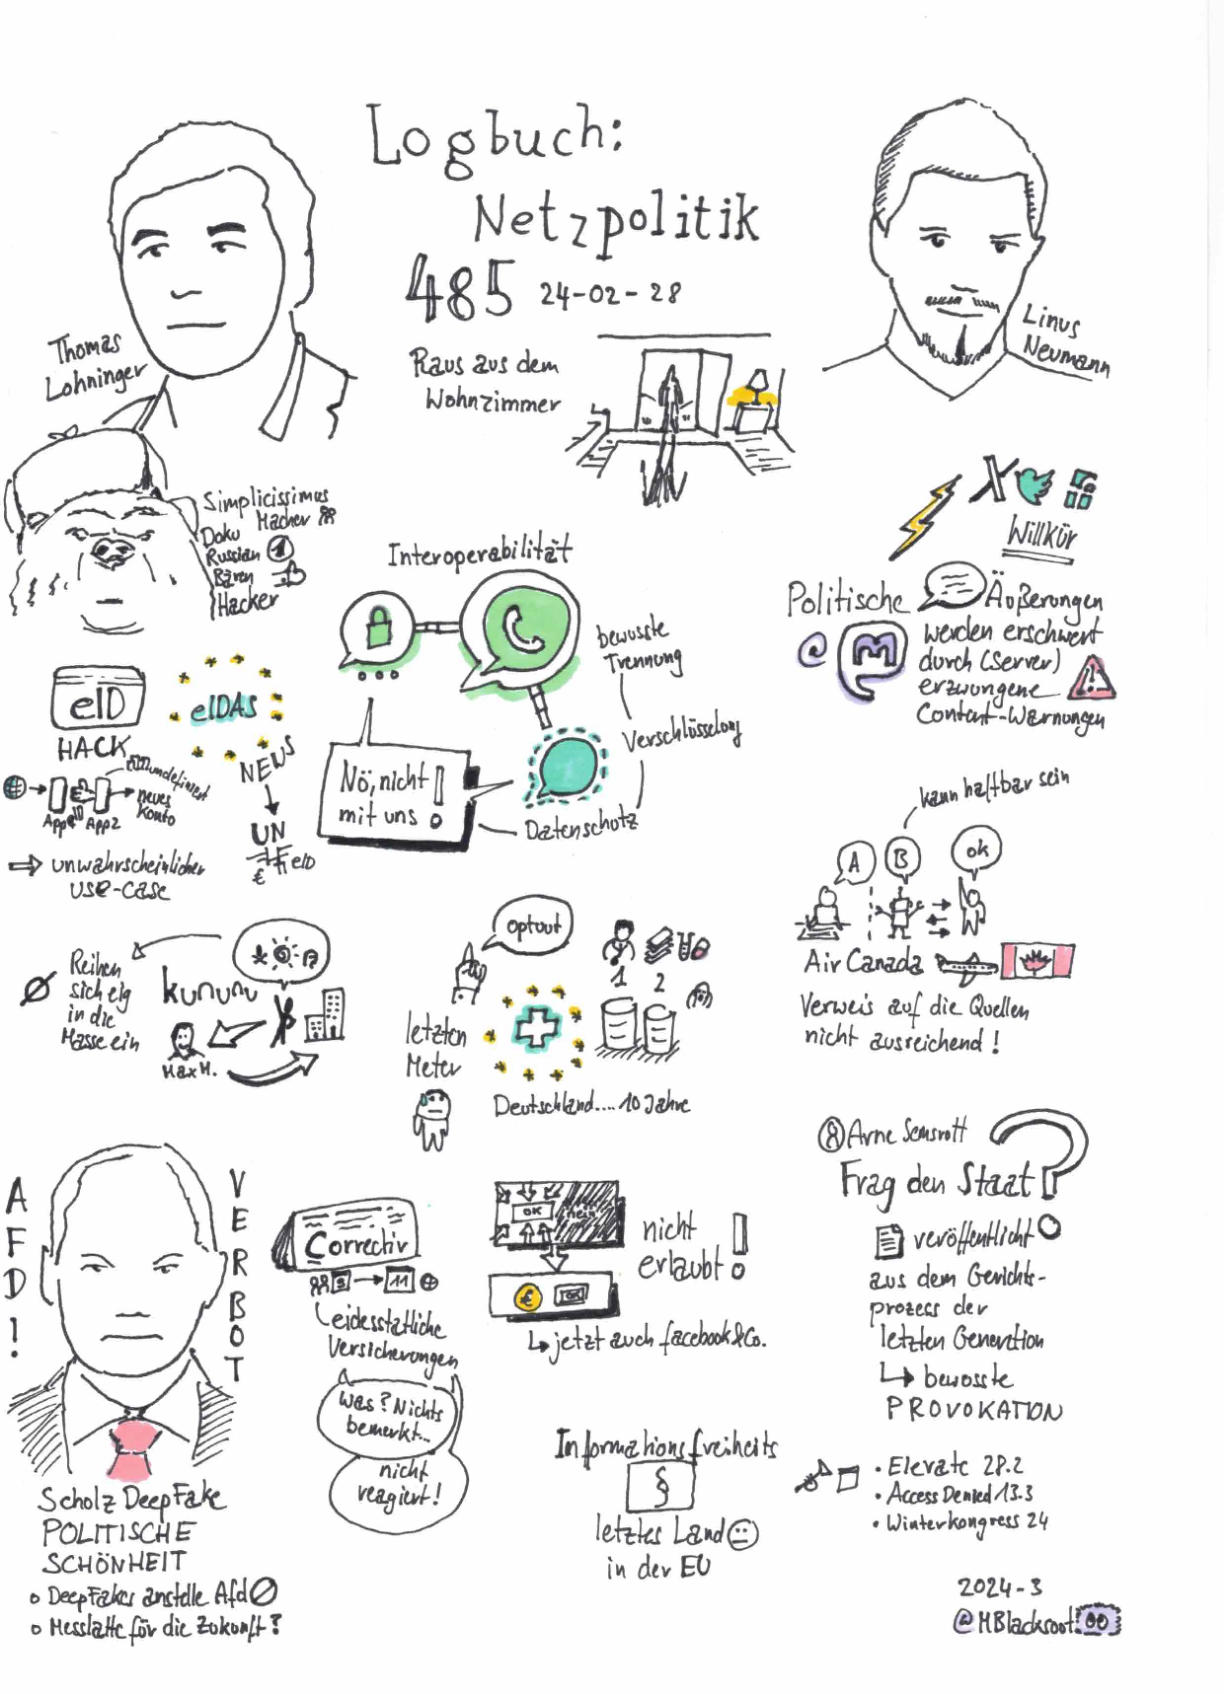 Logbuch:
Netzpolitik
485 24-02-28
Raus aus dem
Wohnzimmer
Thomas
Lohninger
Linus
Neumann
Simplicissimus
Macher
Doku
Russian
Bären
Hacker
Interoperabilität
bewusste
Trennung
Verschlüsselung
Datenschutz
Nö, nicht
mit uns !
X
Willkür
Politische Äußerungen
@ M
werden erschwert
durch (Server)
erzwungene
Content-Warnungen
eID
HACK
undefiniert
App App2
neues
Konto
⇒ unwahrscheinlicher
use-case
eIDAS
NEWS
UN
€ eID
kann haftbar sein
A B ok
Air Canada
Verweis auf die Quellen
nicht ausreichend!
Reihen
sich eig
in die
Masse ein
kununu
Max M.
optout
1 2
letzten
Meter
Deutschland.... 10 Jahre
AFD!
VERBOT
Scholz DeepFake
POLITISCHE
SCHÖNHEIT
o DeepFakes anstelle AfD
o Messlatte für die Zukunft?
Correctiv
8 → 11
eidesstatliche
Versicherungen
Was? Nichts
bemerkt...
nicht
reagiert!
OK nein
€ OK
nicht
erlaubt!
↳ jetzt auch facebook & Co.
Informationsfreiheits
§
letztes Land
in der EU
Arne Semsrott
Frag den Staat?
veröffentlicht
aus dem Gerichts-
prozess der
letzten Generation
↳ bewusste
PROVOKATION
• Elevate 28.2
• Access Denied 13.3
• Winterkongress 24
2024-3
@MBlacksoot